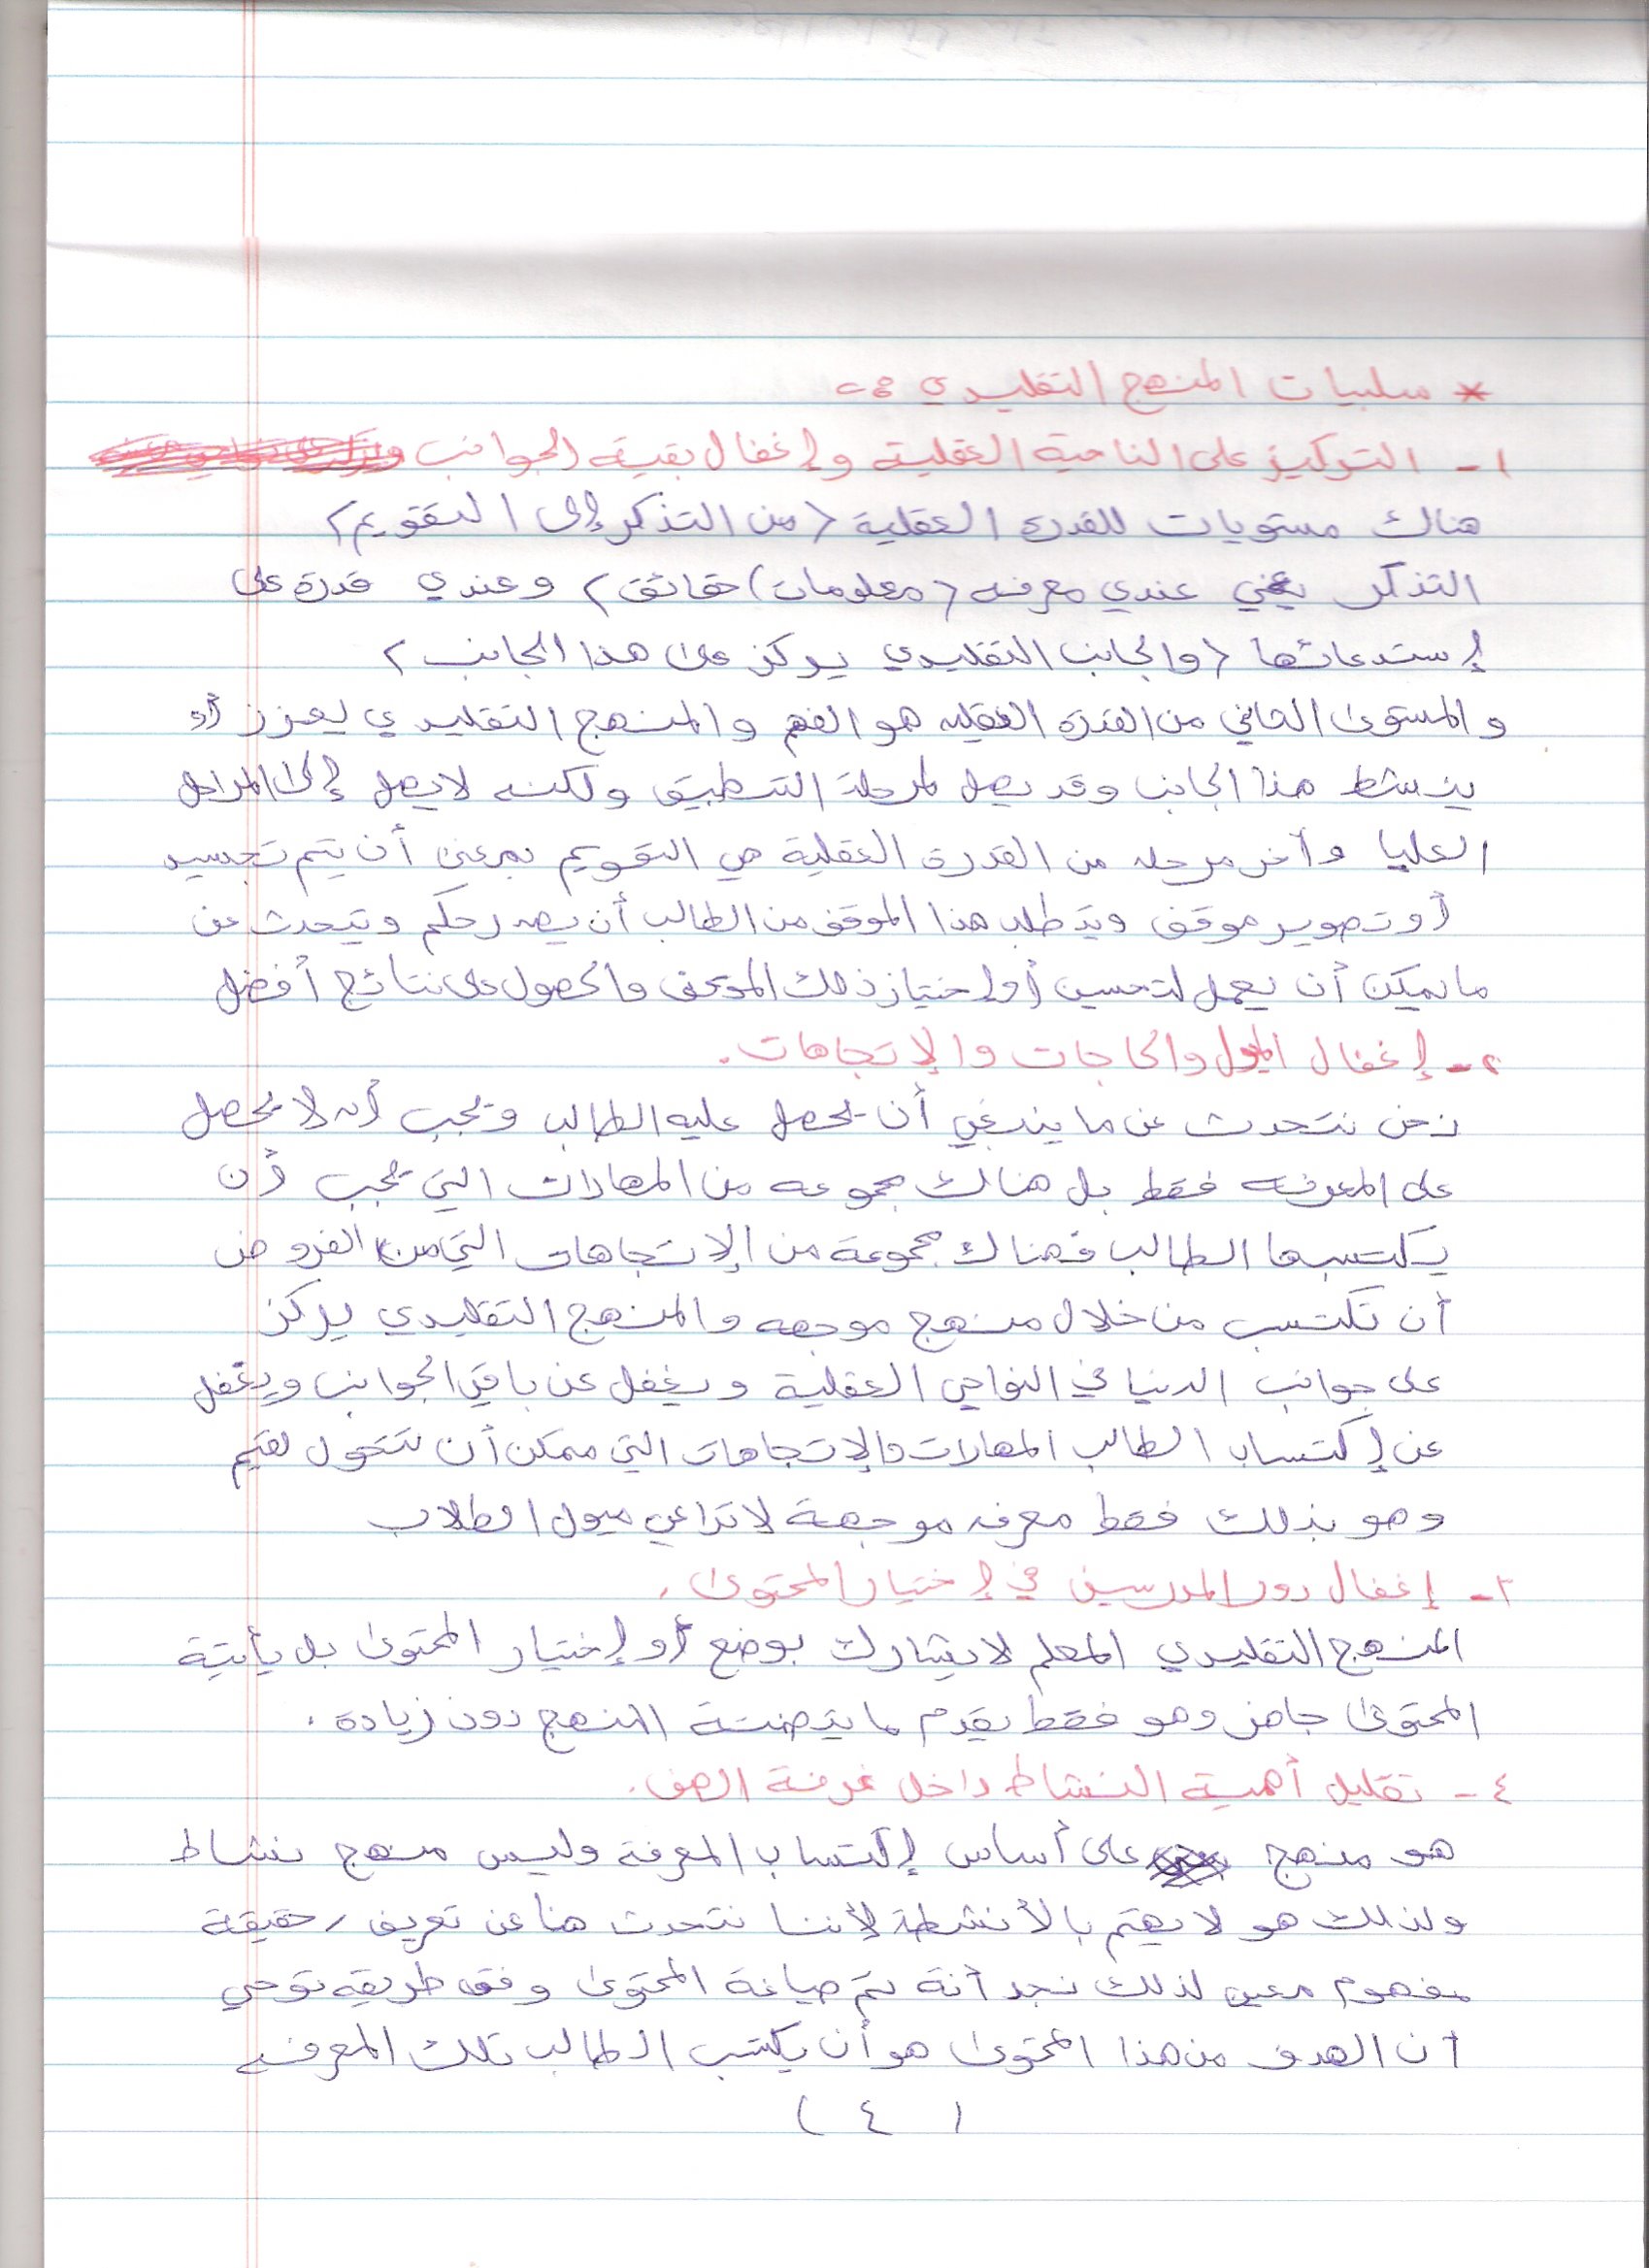 * سلبيات المنهج التقليدي :-
١- التركيز على الناحية العقلية وإغفال بقية الجوانب
هناك مستويات للقدرة العقلية (من التذكر إلى التقويم)
التذكر يعني عندي معرفه (معلومات) حقائق) وعندي قدرة على
إستدعائها (والجانب التقليدي يركز على هذا الجانب)
والمستوى الثاني من القدرة العقليه هو الفهم والمنهج التقليدي يعزز أو
ينشط هذا الجانب وقد يصل لمرحلة التطبيق ولكنه لا يصل إلى المراحل
العليا وأخر مرحله من القدرة العقلية هي التقويم بمعنى أن يتم تجسيد
أو تصوير موقف ويتطلب هذا الموقف من الطالب أن يصدر حكم ويتحدث عن
ما يمكن أن يعمل لتحسين أو إجتياز ذلك الموقف والحصول على نتائج أفضل
٢- إغفال الميول والحاجات والإتجاهات.
نحن نتحدث عن ما ينبغي أن يحصل عليه الطالب ويجب أن لا يحصل
على المعرفه فقط بل هناك مجموعه من المهارات التي يجب أن
يكتسبها الطالب فهناك مجموعة من الإتجاهات التي من الفروض
أن تكتسب من خلال منهج موجهه والمنهج التقليدي يركز
على جوانب الدنيا في النواحي العقلية ويغفل عن باقي الجوانب ويغفل
عن إكتساب الطالب المهارات والإتجاهات التي ممكن أن تتحول لقيم
وهو بذلك فقط معرفه موجهة لا تراعي ميول الطلاب
٣- إغفال دور المدرسين في إختيار المحتوى.
المنهج التقليدي المعلم لا يشارك بوضع أو إختيار المحتوى بل يأتية
المحتوى جاهز وهو فقط يقدم ما يتضمنة المنهج دون زيادة.
٤- تقليل أهمية النشاط داخل غرفة الصف.
هو منهج على أساس إكتساب المعرفة وليس منهج نشاط
ولذلك هو لا يهتم بالأنشطة لأننا نتحدث هنا عن تعريف / حقيقة
مفهوم معين لذلك نجد أنة تم صياغة المحتوى وفق طريقه توحي
أن الهدف من هذا المحتوى هو أن يكتسب الطالب تلك المعرفه
(٤)